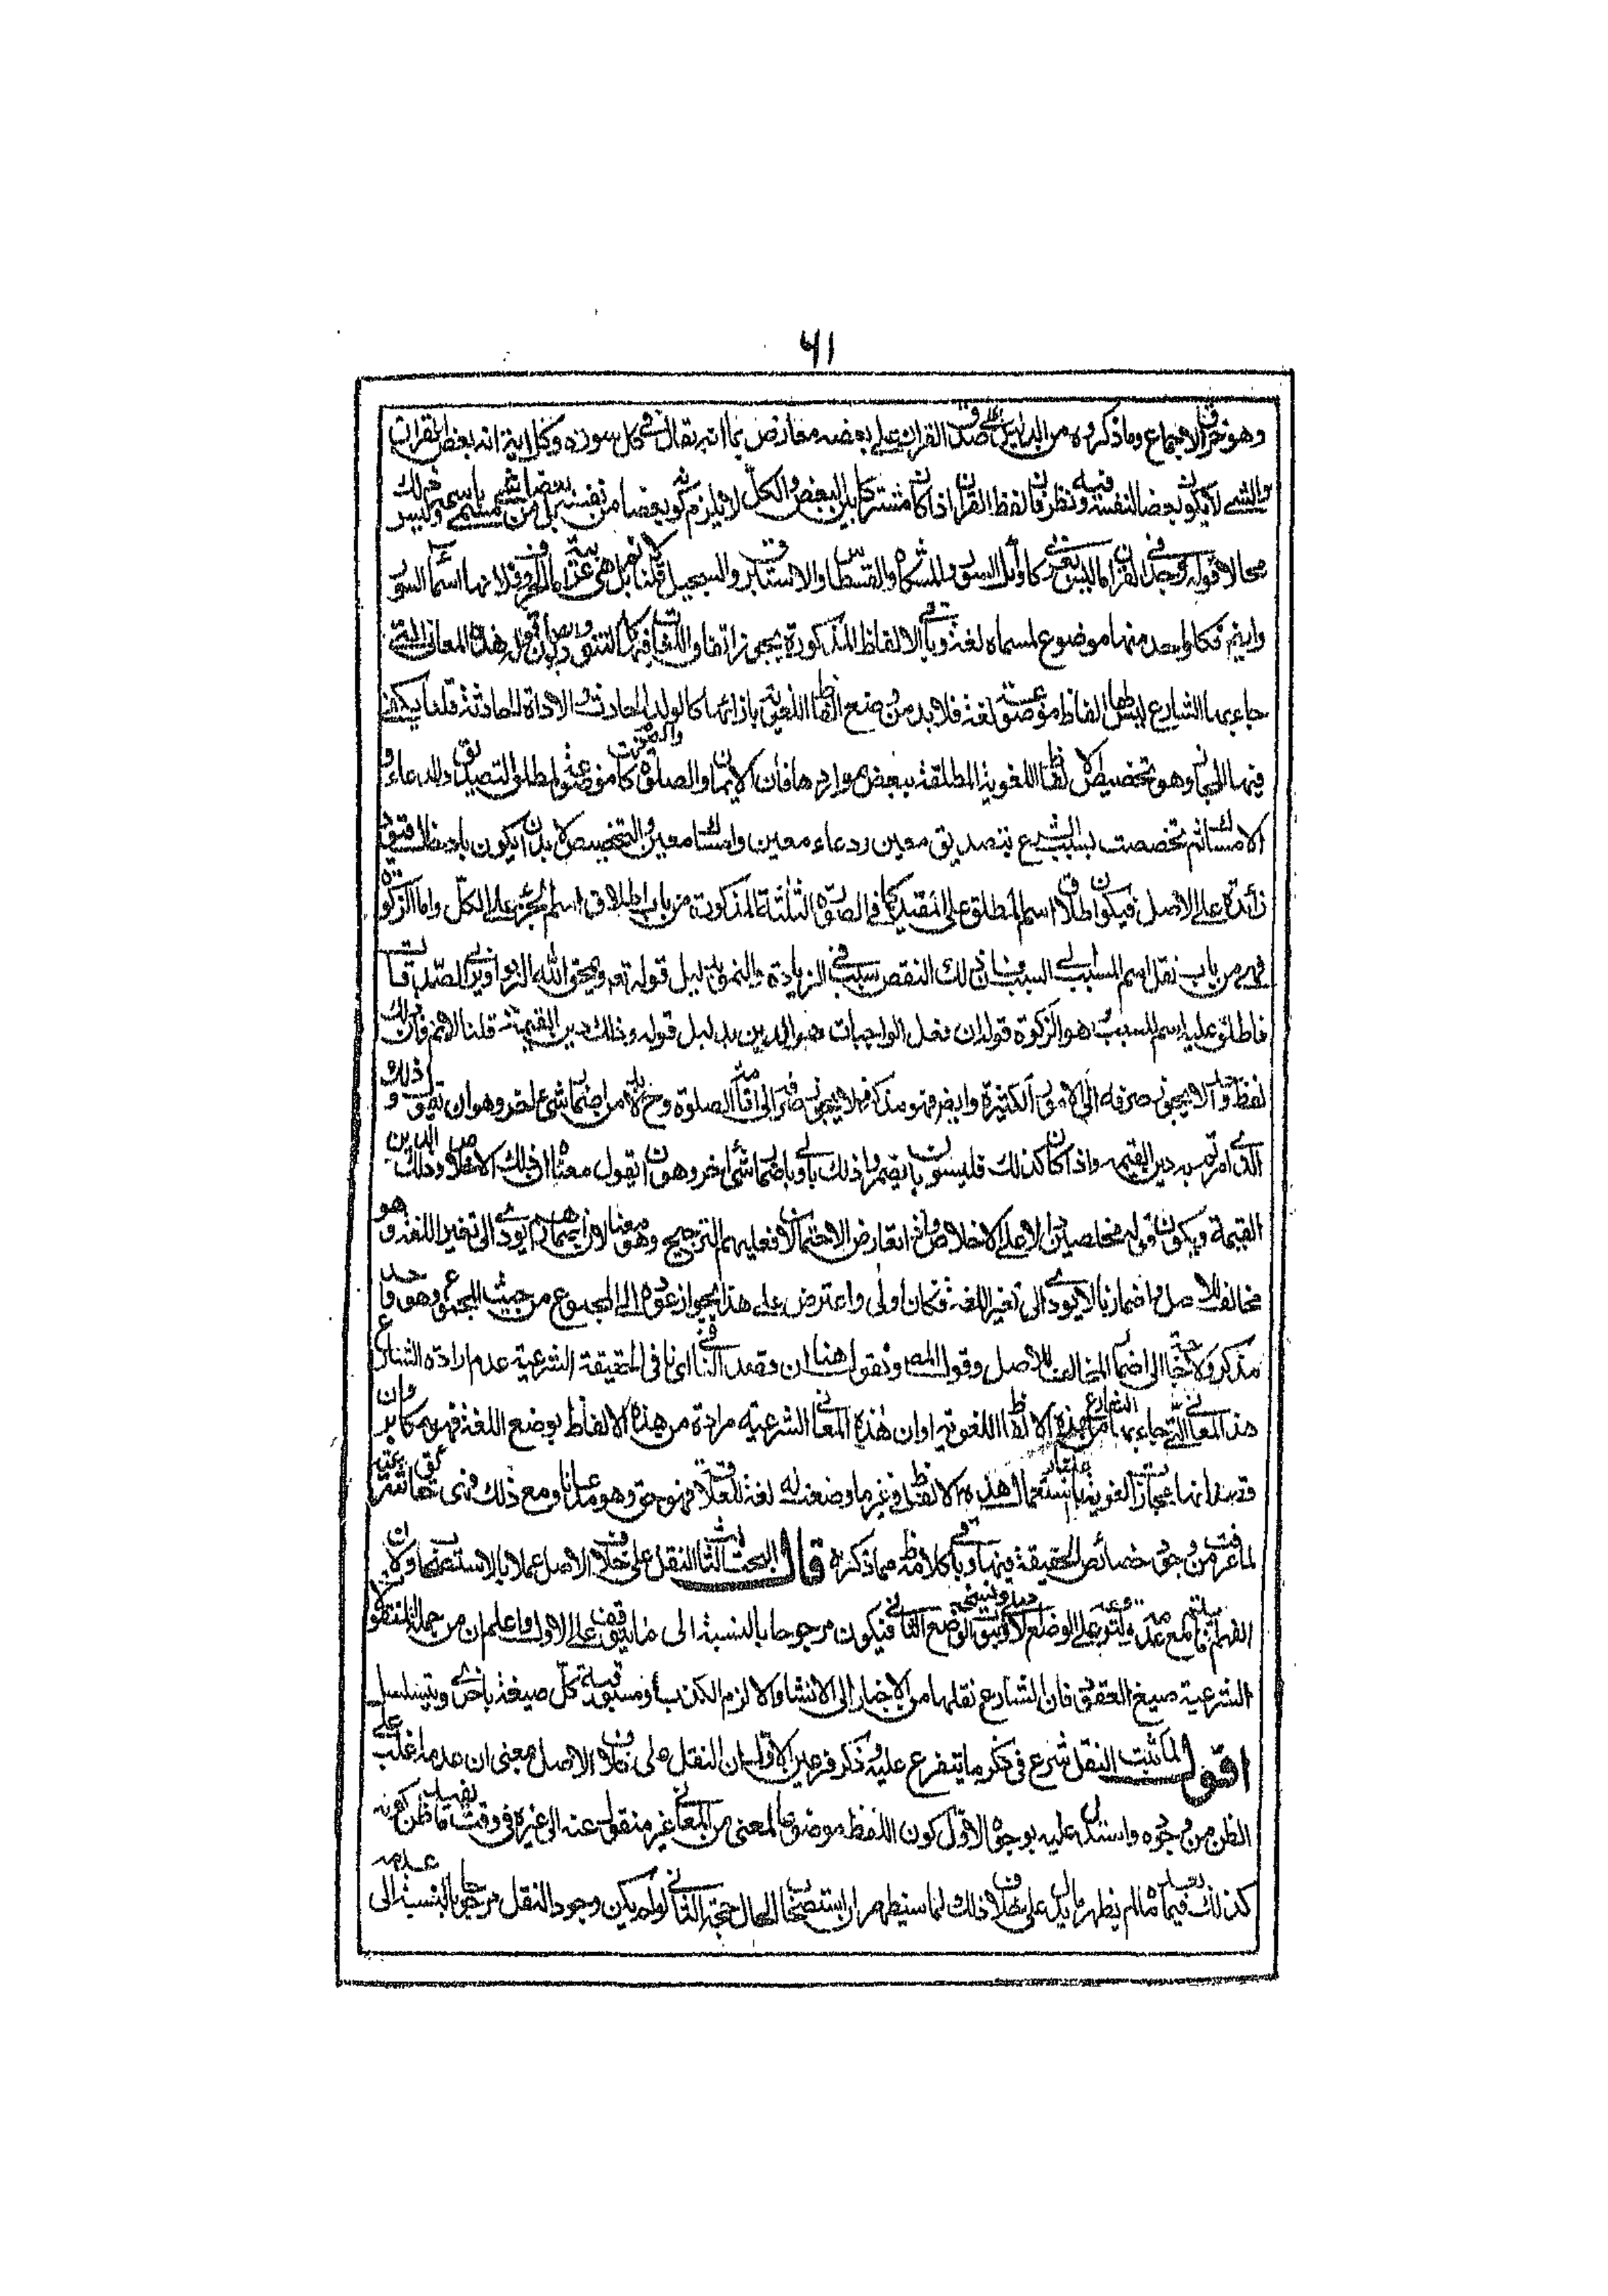 ٦١
وهو خرق الاجماع وما ذكروه من الدليل على صدق القران على بعضه معارض بما انه يقال فى كل سورة وكل اية انه بعض القران
والشىء لا يكون بعضا لنفسه وفيه نظر فان لفظ القران اذا كان مشتركا بين البعض والكل لا يلزم كونه بعضا من نفسه بل من مسمى باسمه وليس ذلك
محالا قوله وفى القران ما ليس بعربى كاوائل السور والمشكاة والقسطاس والاستبرق والسجيل قلنا لا نم بل هى عربية اما الحروف فلانها اسماء السور
وايضا فكل واحد منها موضوع لمسماه لغة وباقى الالفاظ المذكورة يجوز اتفاق اللغات فيها كالتنور والصابون قوله هذه المعانى التى
جاء بها الشارع ليس لها الفاظ موضوعة لغة فلا بد من وضع الفاظ اللغوية بازائها كالولد الحادث والاداة الحادثة قلنا يكفى
فيها المجاز وهو تخصيص الالفاظ اللغوية المطلقة ببعض مواردها فان الايمان والصلوة والصوم كانت موضوعة لمطلق التصديق والدعاء و
الامساك ثم تخصصت بسبب الشرع بتصديق معين ودعاء معين وامساك معين والتخصيص لا بد ان يكون بادخال قيود
زائدة على الاصل فيكون اطلاق اسم المطلق على المقيد كما فى الصور الثلثة المذكورة من باب اطلاق اسم الجزء على الكل واما الزكوة
فهى من باب نقل اسم المسبب الى السبب فان ذلك النقص سبب فى الزيادة والنمو بدليل قوله تعه ويمحق الله الربوا ويربى الصدقات
فاطلق عليه اسم المسبب هو الزكوة قوله ان فعل الواجبات هو الدين بدليل قوله وذلك دين القيمة قلنا لا نم فان ذلك
لفظ واحد لا يجوز صرفه الى الامور الكثيرة وايضا فهو مذكر فلا يجوز صرفه الى اقامة الصلوة وح لا بد من اضمار شىء اخر وهو ان نقول وذلك
الذى امرتم به دين القيمة واذا كان كذلك فليسوا بان يضمروا ذلك باولى باضمار شىء اخر وهو ان يقول معناه ان ذلك الاخلاص الدين
القيمة ويكون قوله مخلصين دالا على الاخلاص واذا تعارض الاحتمالان فعليهم الترجيح وهو معنا لان اضمارهم يؤدى الى تغيير اللغة وهو
مخالف للاصل واضمارنا لا يؤدى الى تغير اللغة فكان اولى واعترض على هذا بجواز عوده الى المجموع من حيث المجموع وهو واحد
مذكر ولا حاجة الى اضمار المخالف للاصل وقول المصـ ونقول هنا ان قصد النافى اى نافى الحقيقة الشرعية عدم ارادة الشارع
هذه المعانى التى جاء بها الشارع من هذه الالفاظ اللغوية او ان هذه المعانى الشرعية مرادة من هذه الالفاظ بوضع اللغة فهو مكابر وان
قصد انها مجازات لغوية باعتبار استعمال هذه الالفاظ فى غير ما وضعت له لغة للعلاقة فهو حق وهو مدعانا ومع ذلك فهى حقائق شرعية
لما عرفت من وجود خصائص الحقيقة فيها وباقى كلامه ظ مما ذكره قال البحث الثالث النقل على خلاف الاصل عملا بالاستصحاب ولان
الشرعية صيغ العقود فان الشارع نقلها من الاخبار الى الانشاء والا لزم الكذب او مسبوقية كل صيغة باخرى ويتسلسل
اقول لما ثبت النقل شرع فى ذكر ما يتفرع عليه وذكر فرعين الاول ان النقل على خلاف الاصل بمعنى ان عدمه اغلب على
الظن من وجوده واستدل عليه بوجوه الاول كون اللفظ موضوعا لمعنى من المعانى غير منقول عنه الى غيره فى وقت ما
كذلك فيما بعده ما لم يظهر دليل على خلاف ذلك لما سيظهر ان استصحاب الحال حجة الثانى لو لم يكن وجود النقل مرجوحا بالنسبة الى عدمه